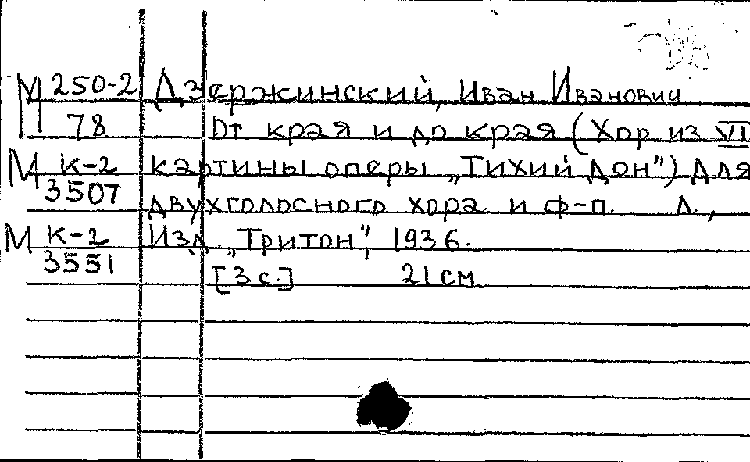 М 250-2 Дзержинский, Иван Иванович
78 От края и до края (Хор из VI
М К-2 картины оперы „Тихий Дон") Для
3507 двухголосного хора и ф-п. Л.,
М К-2 Изд. „Тритон", 1936.
3551 [3 с.] 21 см.